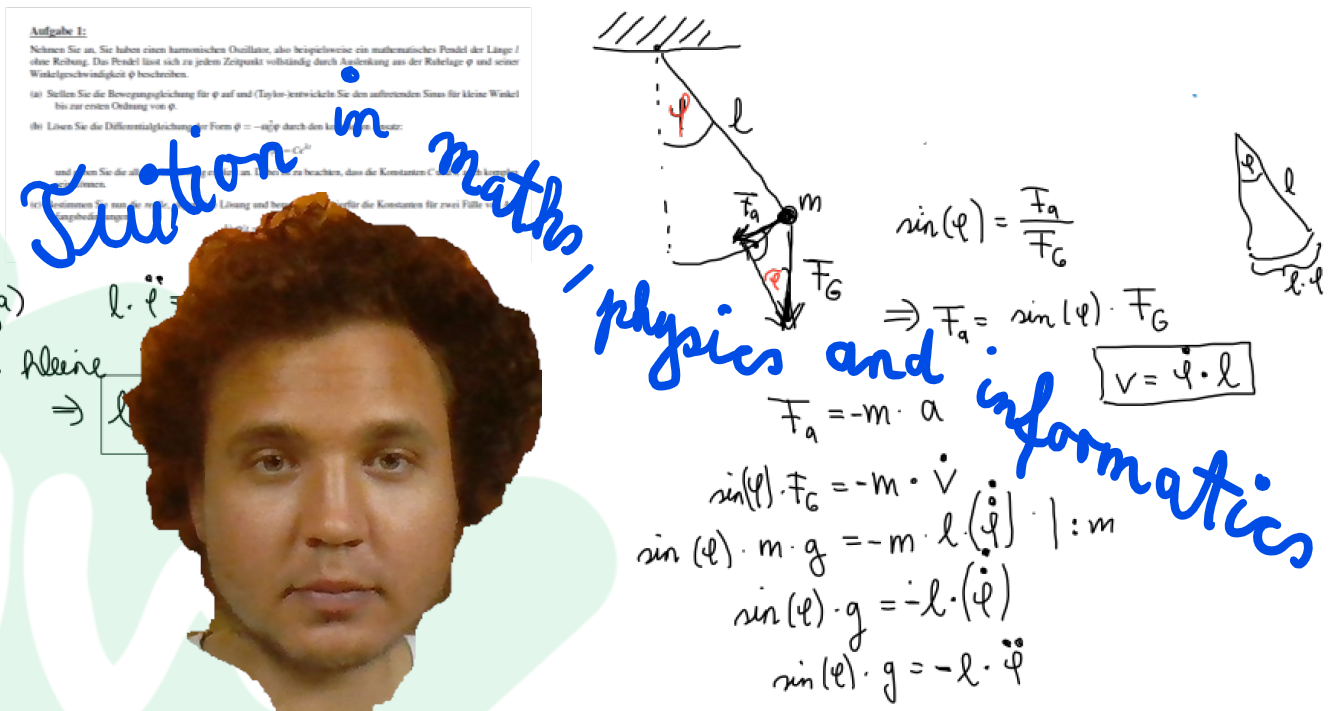 Aufgabe 1:
Nehmen Sie an, Sie haben einen harmonischen Oszillator, also beispielsweise ein mathematisches Pendel der Länge l
ohne Reibung. Das Pendel lässt sich zu jedem Zeitpunkt vollständig durch Auslenkung aus der Ruhelage φ und seiner
Winkelgeschwindigkeit φ̇ beschreiben.
(a) Stellen Sie die Bewegungsgleichung für φ auf und (Taylor-)entwickeln Sie den auftretenden Sinus für kleine Winkel
bis zur ersten Ordnung von φ.
(b) Lösen Sie die Differentialgleichung der Form φ̈ = −ω₀²φ durch den
und die zu beachten, dass die Konstanten C
(c) Sie nun die Lösung und die Konstanten für zwei Fälle
Tuition in maths, physics and informatics
a) l · φ̈ =
kleine
⇒ l
φ
l
m
Fa
φ
FG
sin(φ) = Fa / FG
⇒ Fa = sin(φ) · FG
φ
l
l·φ
v = φ̇ · l
Fa = -m · a
sin(φ) · FG = -m · v̇
sin(φ) · m · g = -m · l · (φ̇)˙ | : m
sin(φ) · g = -l · (φ̇)˙
sin(φ) · g = -l · φ̈